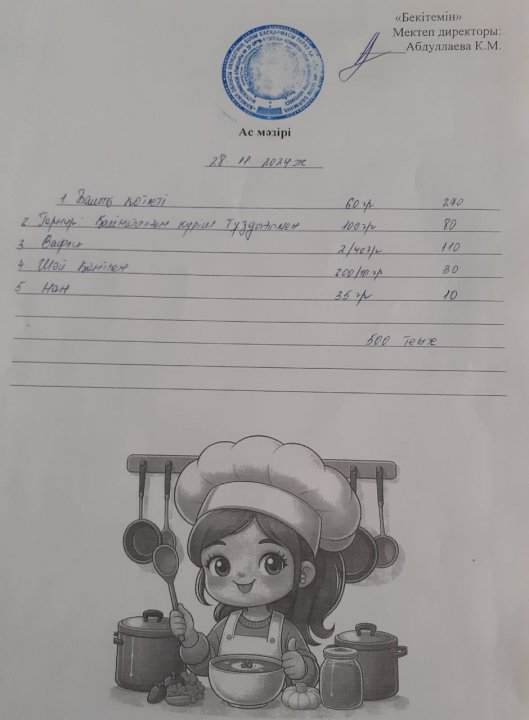 «Бекітемін»
Мектеп директоры:
Абдуллаева К.М.
Ас мәзірі
28 11 2024ж
1. котлеті 60гр 270
2 Гарнир: күріш тұздықпен 100гр 80
3. Вафли 2/40гр 110
4 Шәй Қантпен 200/10гр 30
5 Нан 35гр 10
500 теңге